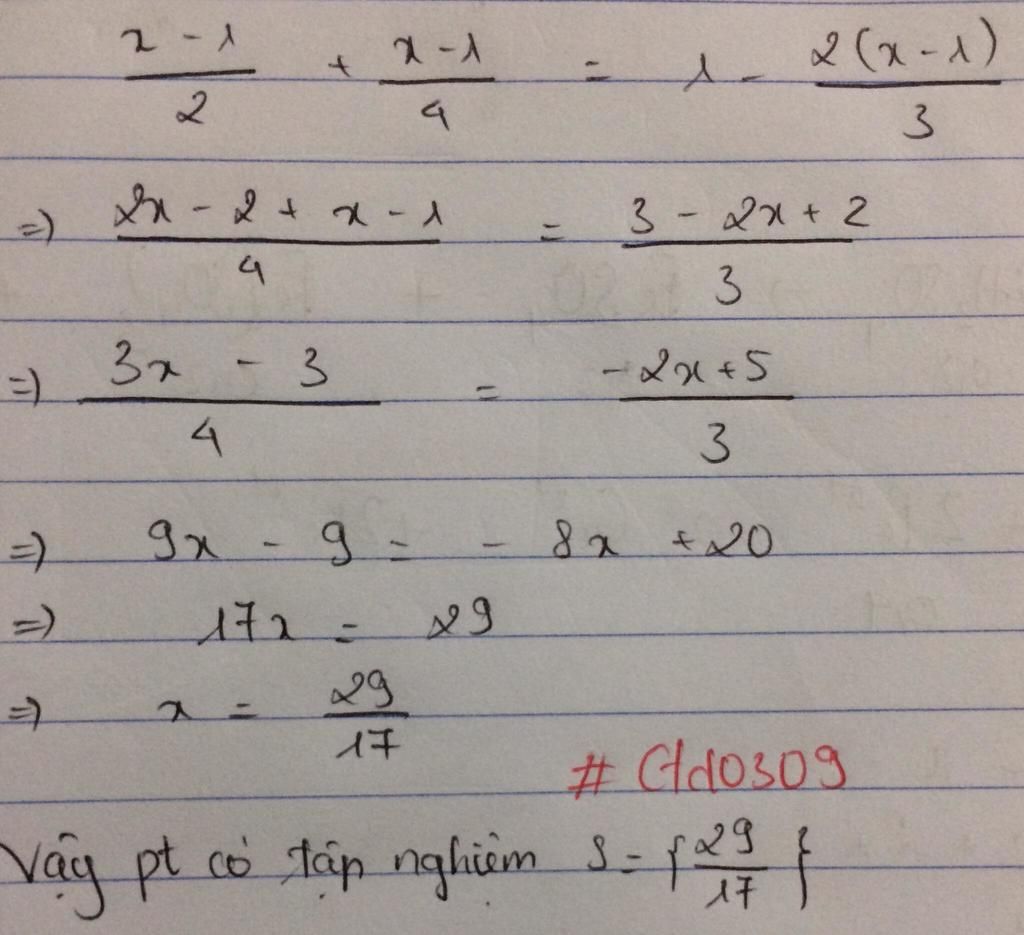 x - 1 / 2 + x - 1 / 4 = 1 - 2(x - 1) / 3
=) 2x - 2 + x - 1 / 4 = 3 - 2x + 2 / 3
=) 3x - 3 / 4 = -2x + 5 / 3
=) 9x - 9 = - 8x + 20
=) 17x = 29
=) x = 29 / 17
Vậy pt có tập nghiệm S = { 29 / 17 }